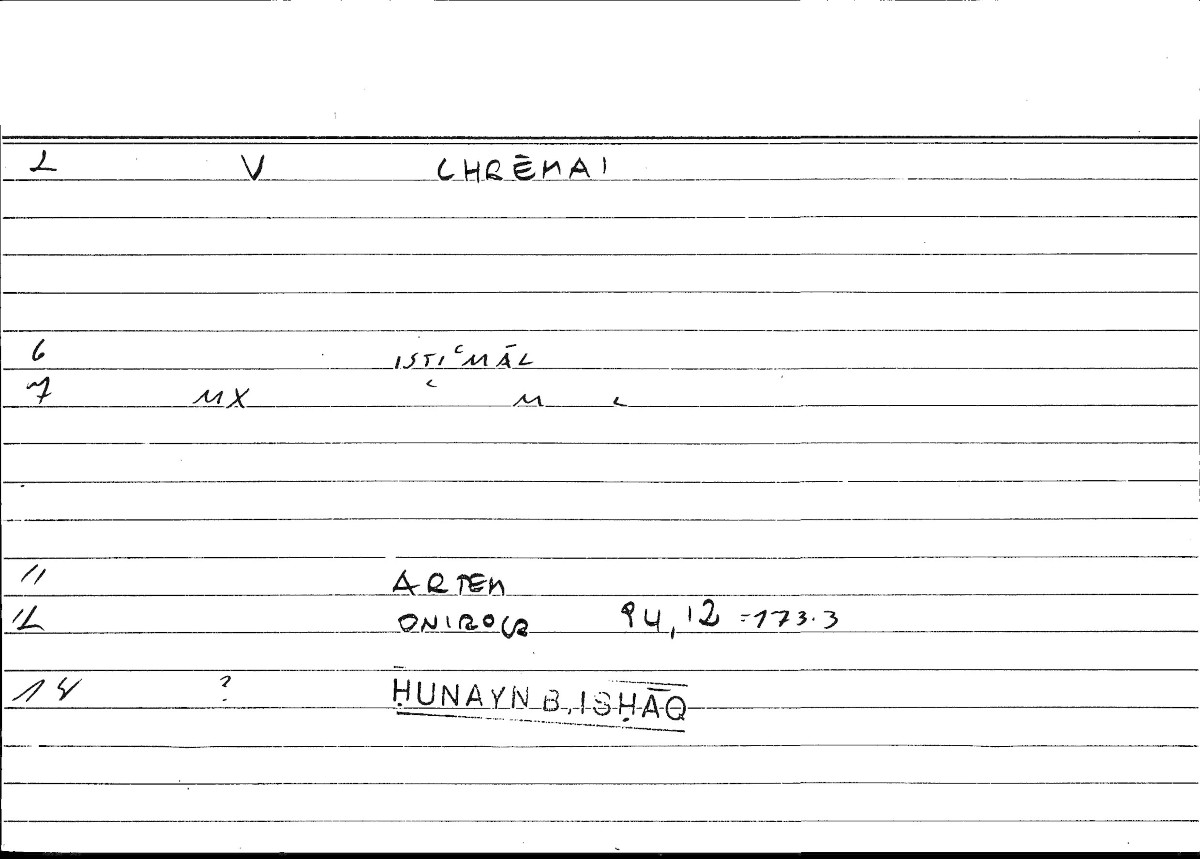 2 V CHRĒMAI
6 ISTIʿMĀL
7 MX ʿ M L
11 ARTEM
12 ONIROCR 94,12 =173.3
14 ? ḤUNAYN B. ISḤĀQ